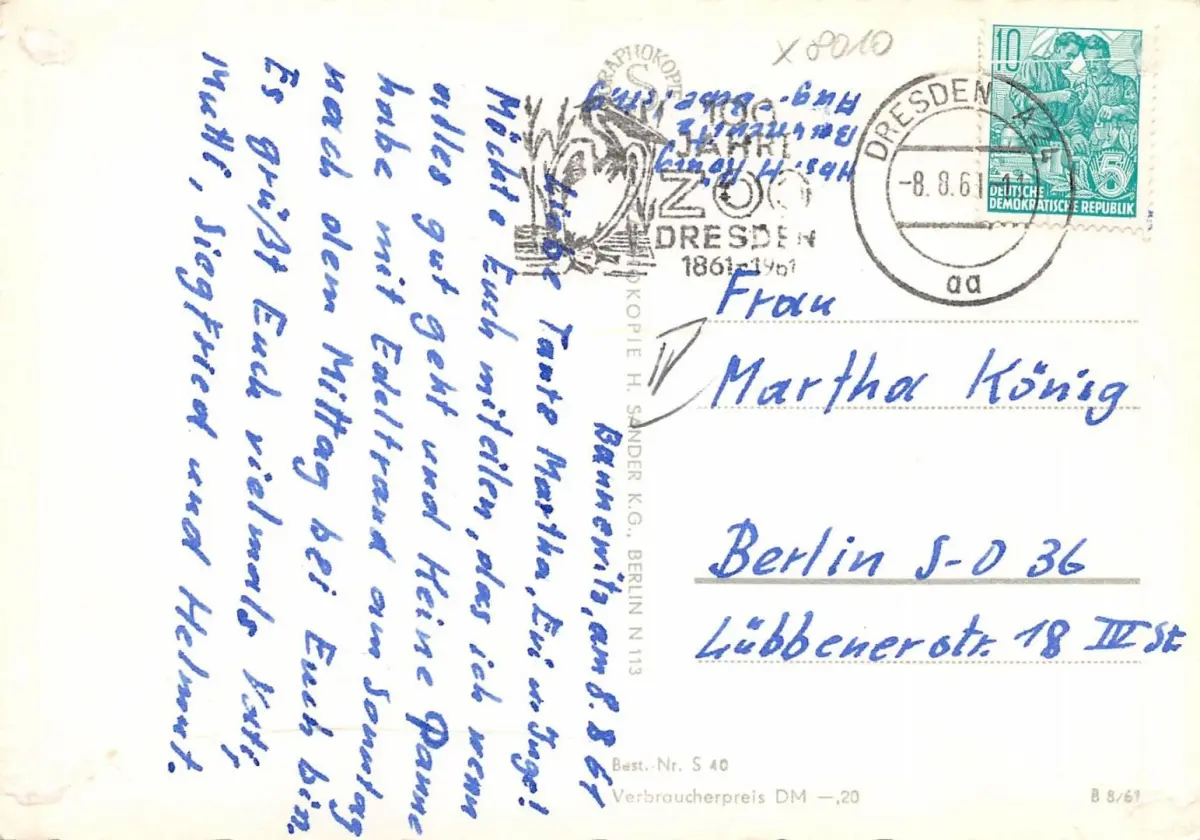 x 8010
10
DEUTSCHE
DEMOKRATISCHE REPUBLIK
5
DRESDEN A24
-8. 8.61
aa
100
JAHRE
ZOO
DRESDEN
1861-1961
Bannewitz
Bannewitz, am 8. 8 61
Liebe Tante Martha, Evi u. Inge!
Möchte Euch miteilen, das ich wenn
alles gut geht und Keine Panne
habe mit Edeltraud am Sonntag
nach dem Mittag bei Euch bin.
Es grüßt Euch vielmals Vati,
Mutti, Siegfried und Helmut.
Frau
Martha König
Berlin S-O 36
Lübbenerstr. 18 IV St
OKOPIE H. SANDER K.G., BERLIN N 113
Best.-Nr. S 40
Verbraucherpreis DM —,20
B 8/61